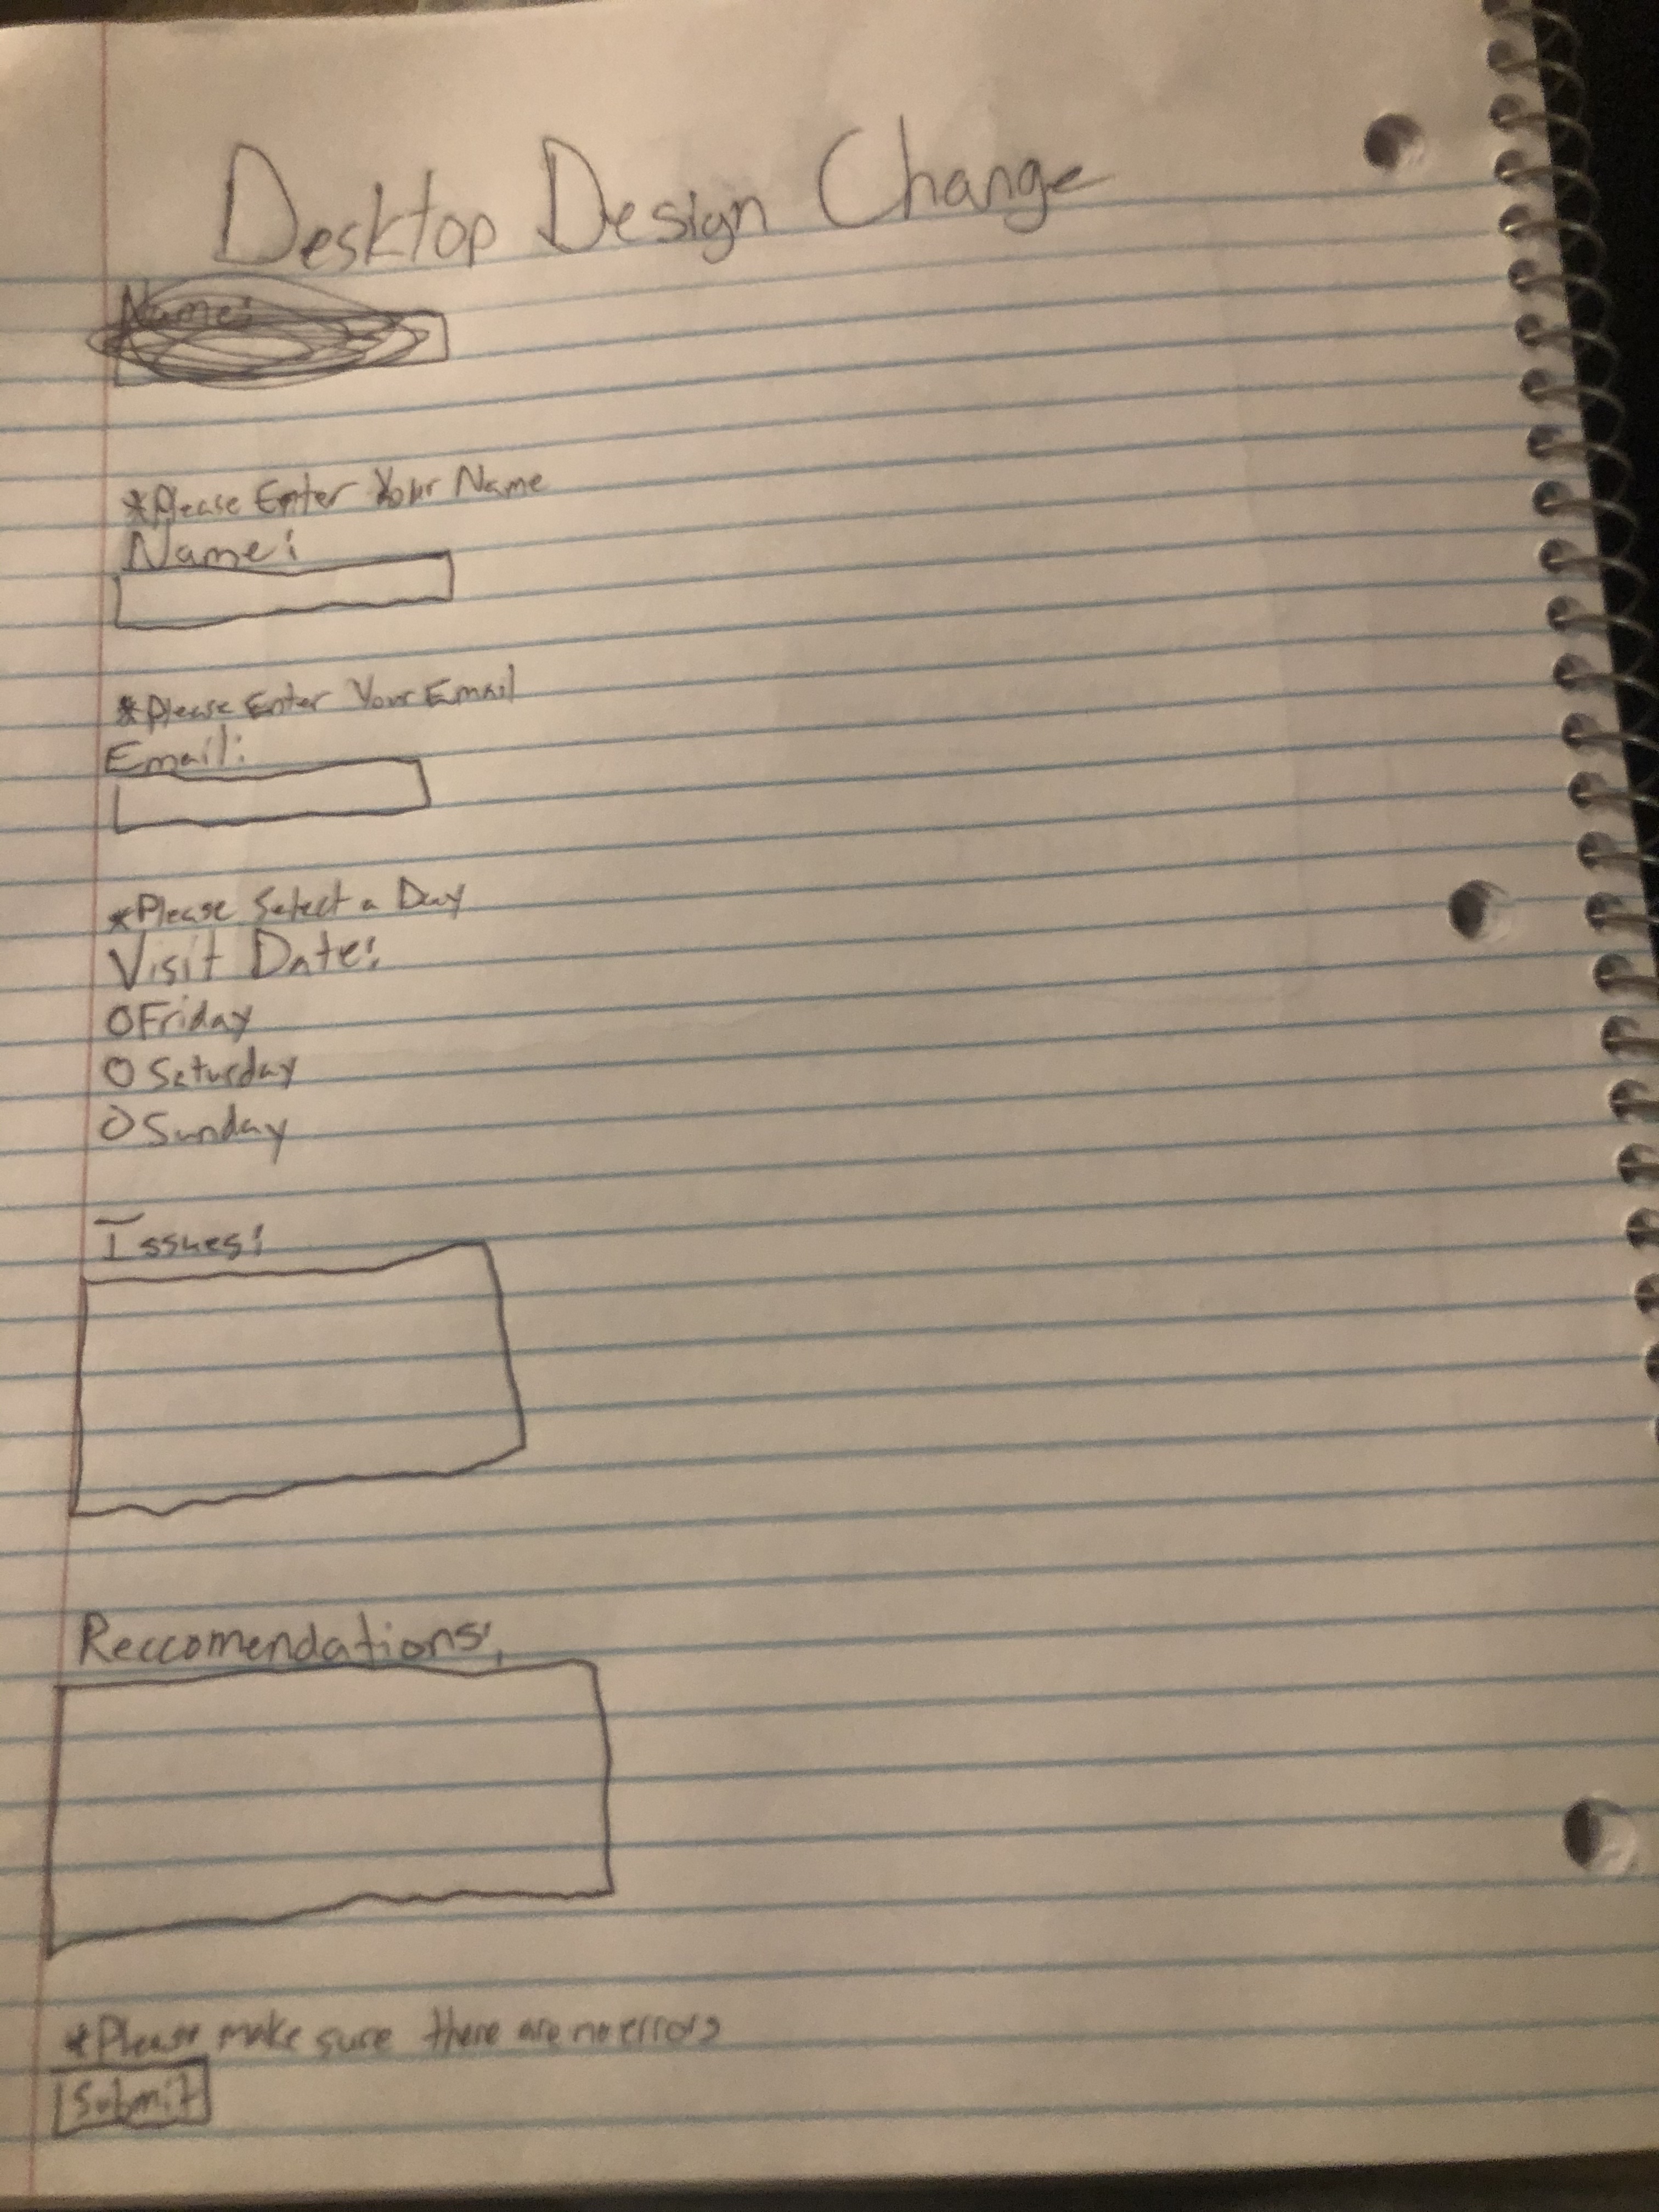 Desktop Design Change
Name:
*Please Enter Your Name
Name:
*Please Enter Your Email
Email:
*Please Select a Day
Visit Date:
Friday
Saturday
Sunday
Issues:
Reccomendations:
*Please make sure there are no errors
Submit